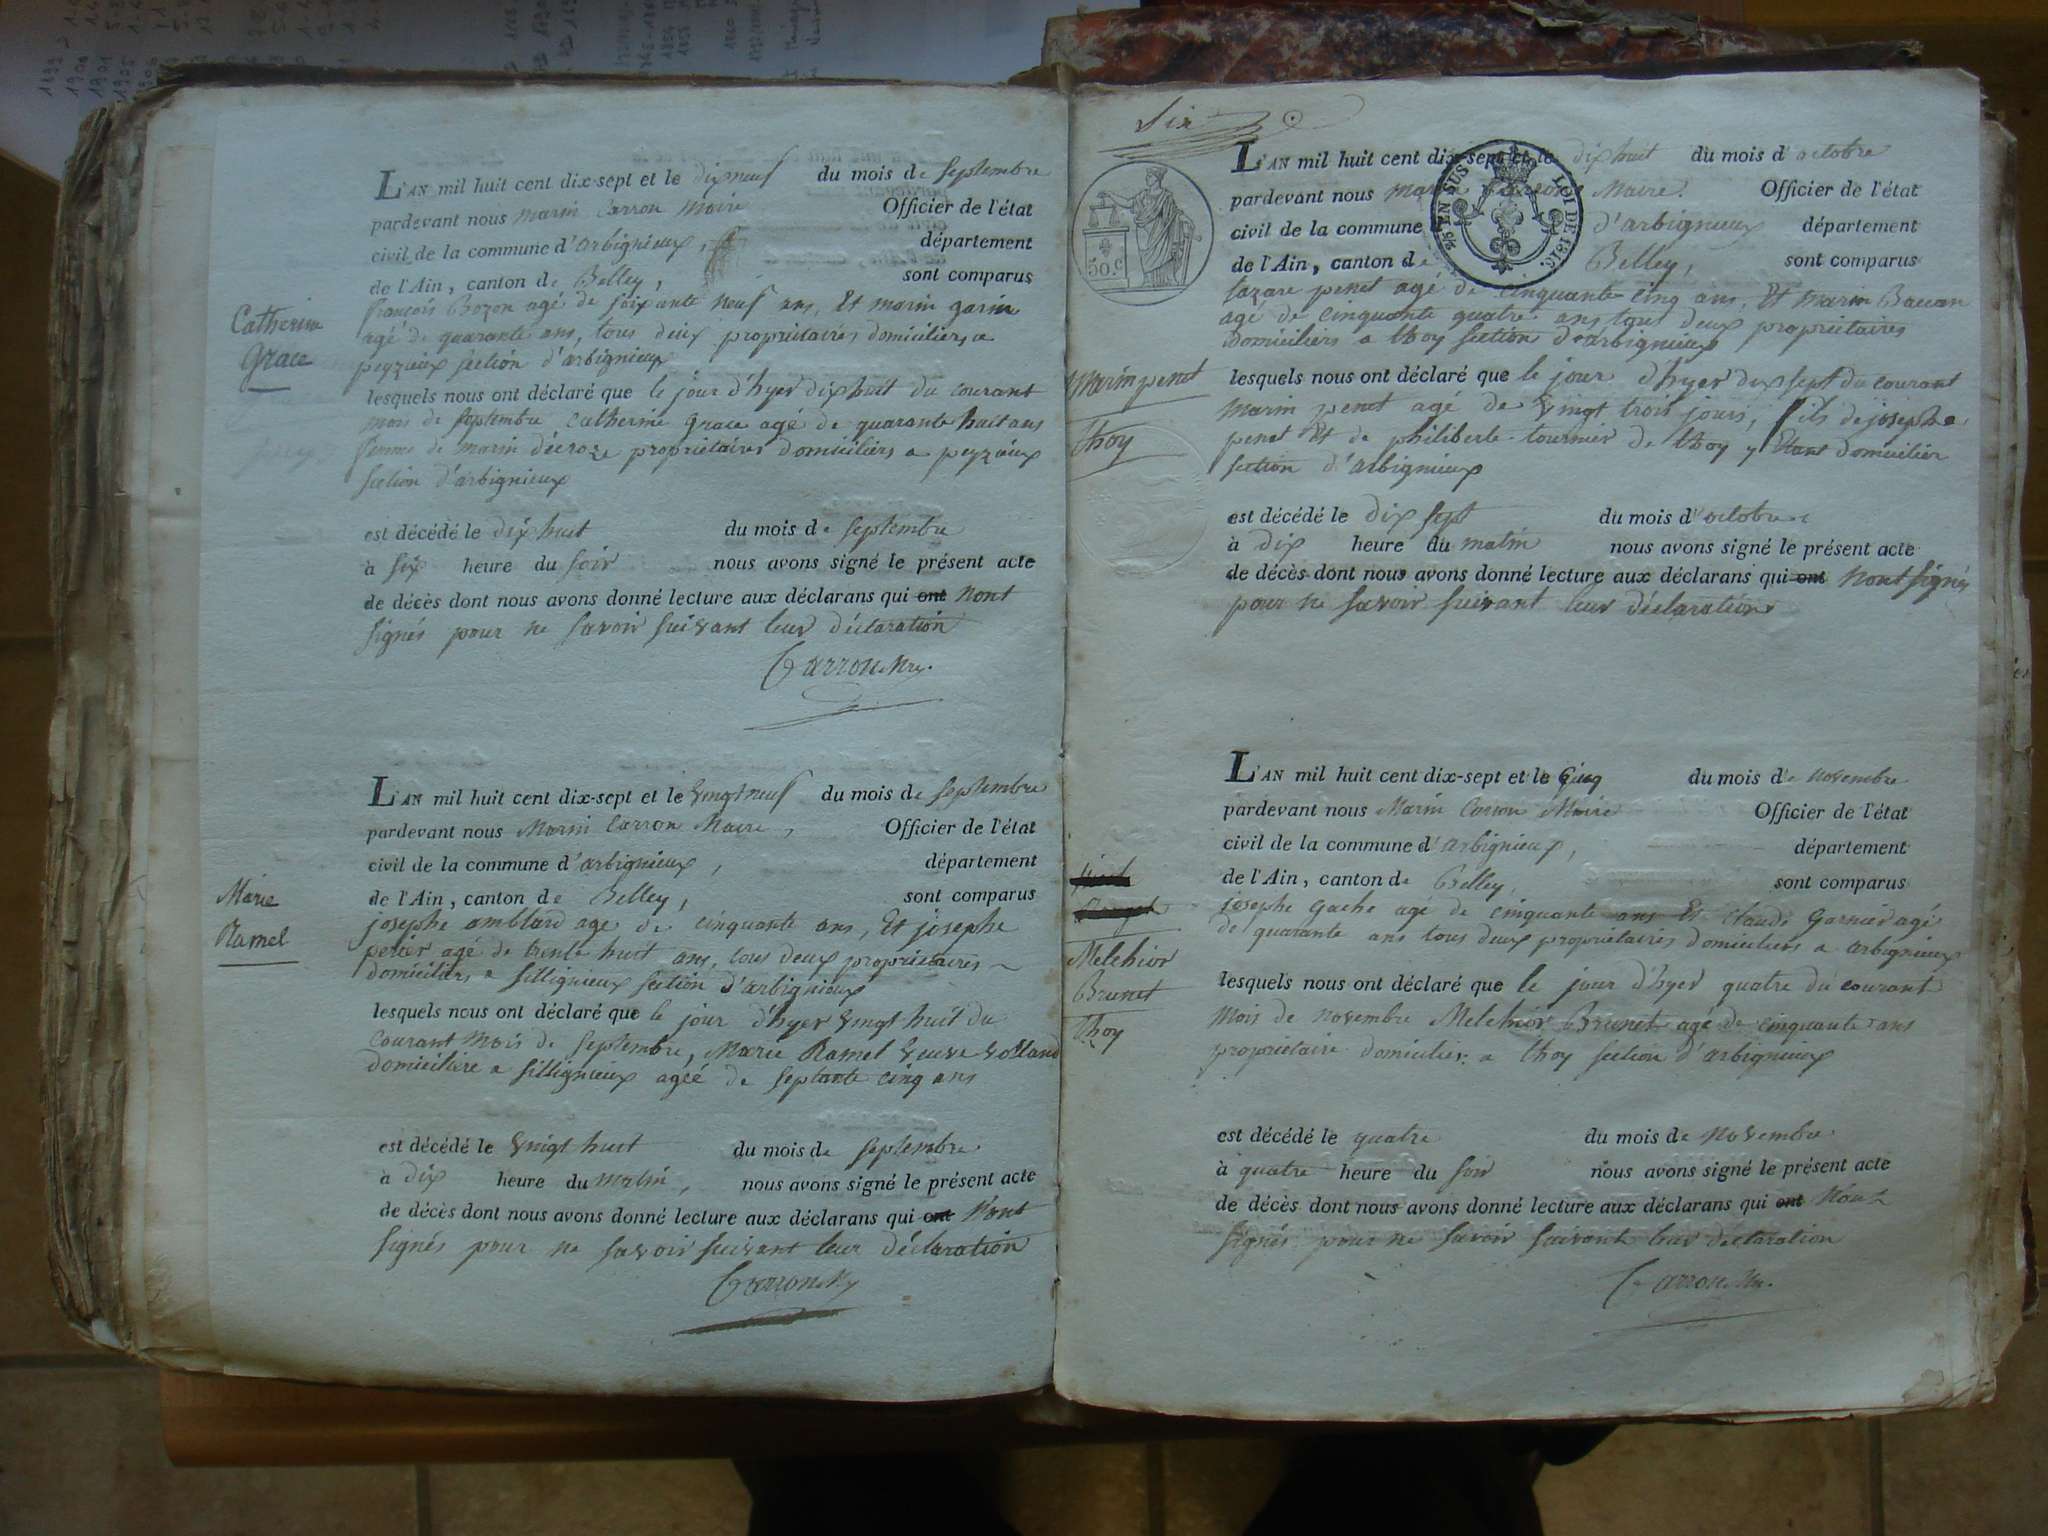 Catherine
Grace
L'AN mil huit cent dix-sept et le dix neuf du mois de septembre
pardevant nous marin Carron Maire Officier de l'état
civil de la commune d'arbignieux, département
de l'Ain, canton de Belley, sont comparus
françois Bozon agé de soixante neuf ans, Et marin garin
agé de quarante ans, tous deux propriétaires domiciliers a
peyzieux section d'arbignieux
lesquels nous ont déclaré que le jour d'hyer dix huit du courant
mois de septembre Catherine Grace agé de quarante huit ans
femme de marin décroze propriétaires domiciliers a peyzieux
section d'arbignieux
est décédé le dix huit du mois de septembre
à six heure du soir nous avons signé le présent acte
de décès dont nous avons donné lecture aux déclarans qui ont Nont
signés pour ne savoir suivant leur déclaration
Carron Mre.
Marie
Ramel
L'AN mil huit cent dix-sept et le vingt neuf du mois de septembre
pardevant nous Marin Carron Maire, Officier de l'état
civil de la commune d'arbignieux, département
de l'Ain, canton de Belley, sont comparus
josephe amblard age de cinquante ans, Et josephe
perier agé de trente huit ans, tous deux propriétaires
domiciliers a sillignieux section d'arbignieux
lesquels nous ont déclaré que le jour d'hyer vingt huit du
Courant Mois de septembre, Marie Ramel veuve
domiciliere a sillignieux agéé de septante cinq ans
est décédé le vingt huit du mois de septembre
à dix heure du matin, nous avons signé le présent acte
de décès dont nous avons donné lecture aux déclarans qui ont Nont
signés pour ne savoir suivant leur déclaration
Carron Mre
Six
50.C
EN SUS LOI DE 1816.
Marin penet
Thoy
L'AN mil huit cent dix-sept et le dix huit du mois d'octobre
pardevant nous Maire. Officier de l'état
civil de la commune d'arbignieux département
de l'Ain, canton de Belley, sont comparus
lazare penet agé de cinquante cinq ans, Et marin
agé de cinquante quatre ans tous deux propriétaires
domiciliers a thoy section d'arbignieux
lesquels nous ont déclaré que le jour d'hyer dix sept du courant
Marin penet agé de vingt trois jours, fils de josephe
penet Et de philiberte tournier de thoy y Etant domicilier
section d'arbignieux
est décédé le dix sept du mois d'octobre
à dix heure du matin nous avons signé le présent acte
de décès dont nous avons donné lecture aux déclarans qui ont Nont signés
pour ne savoir suivant leur déclaration
Melchior
Brunet
Thoy
L'AN mil huit cent dix-sept et le Cinq du mois de novembre
pardevant nous Marin Carron Maire Officier de l'état
civil de la commune d'arbignieux, département
de l'Ain, canton de Belley, sont comparus
josephe Gache agé de cinquante ans Et claude Garnier agé
de quarante ans tous deux propriétaires domiciliers a arbignieux
lesquels nous ont déclaré que le jour d'hyer quatre du courant
Mois de novembre Melchior Brunet agé de cinquante ans
propriétaire domicilier a thoy section d'arbignieux
est décédé le quatre du mois de Novembre
à quatre heure du soir nous avons signé le présent acte
de décès dont nous avons donné lecture aux déclarans qui ont Nont
signés pour ne savoir suivant leur déclaration
Carron Mre.